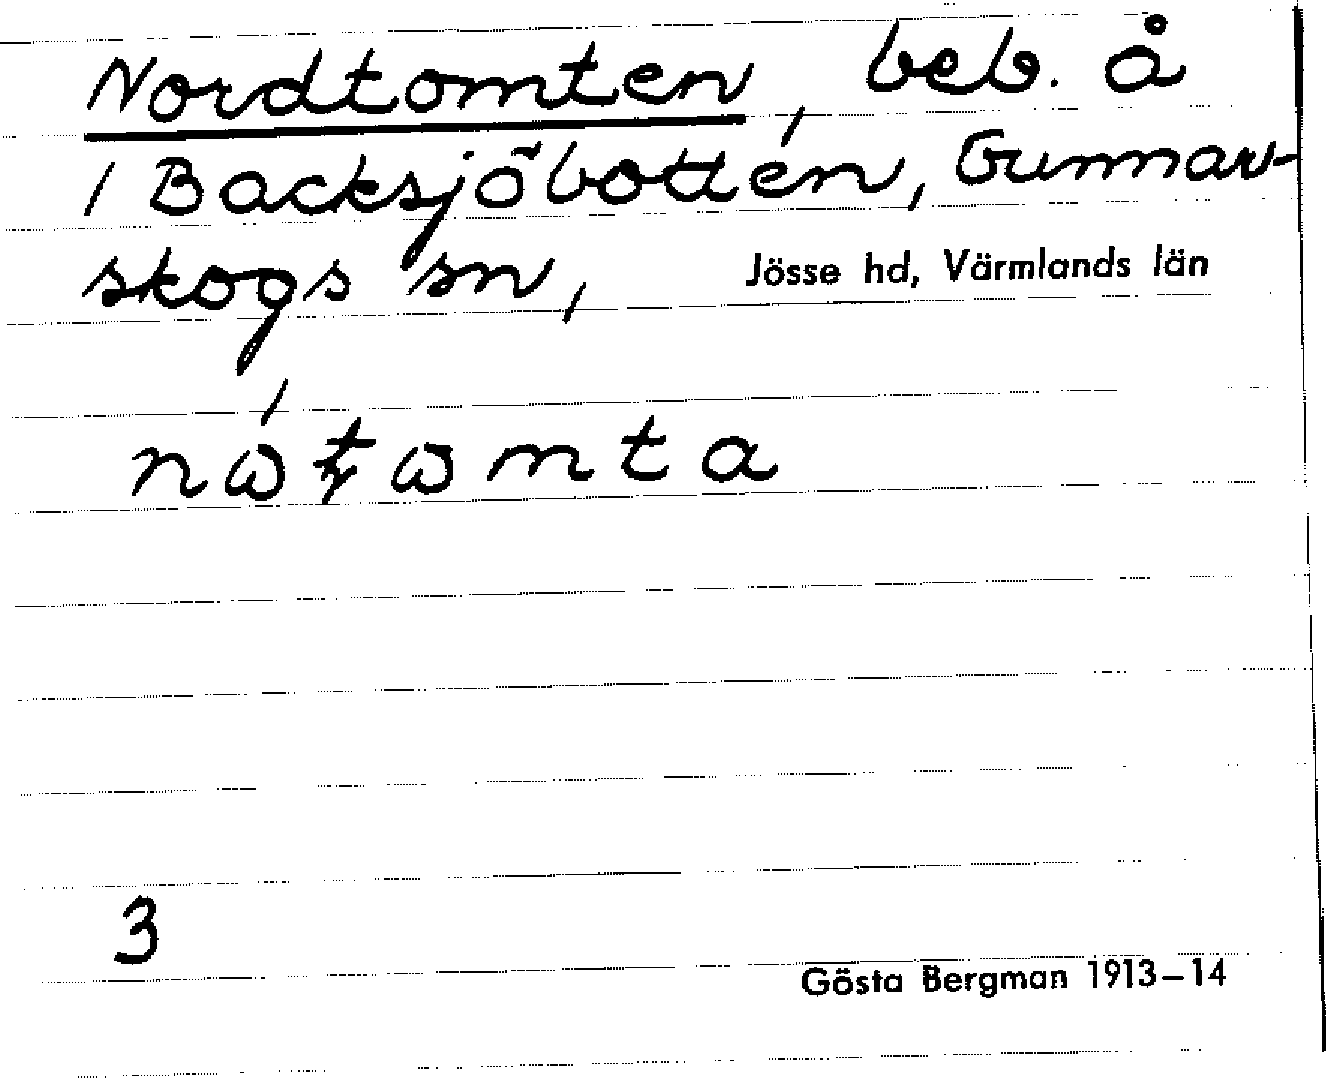 Nordtomten, beb. å
1 Backsjöbotten, Gunnar-
skogs sn, Jösse hd, Värmlands län
3
Gösta Bergman 1913–14